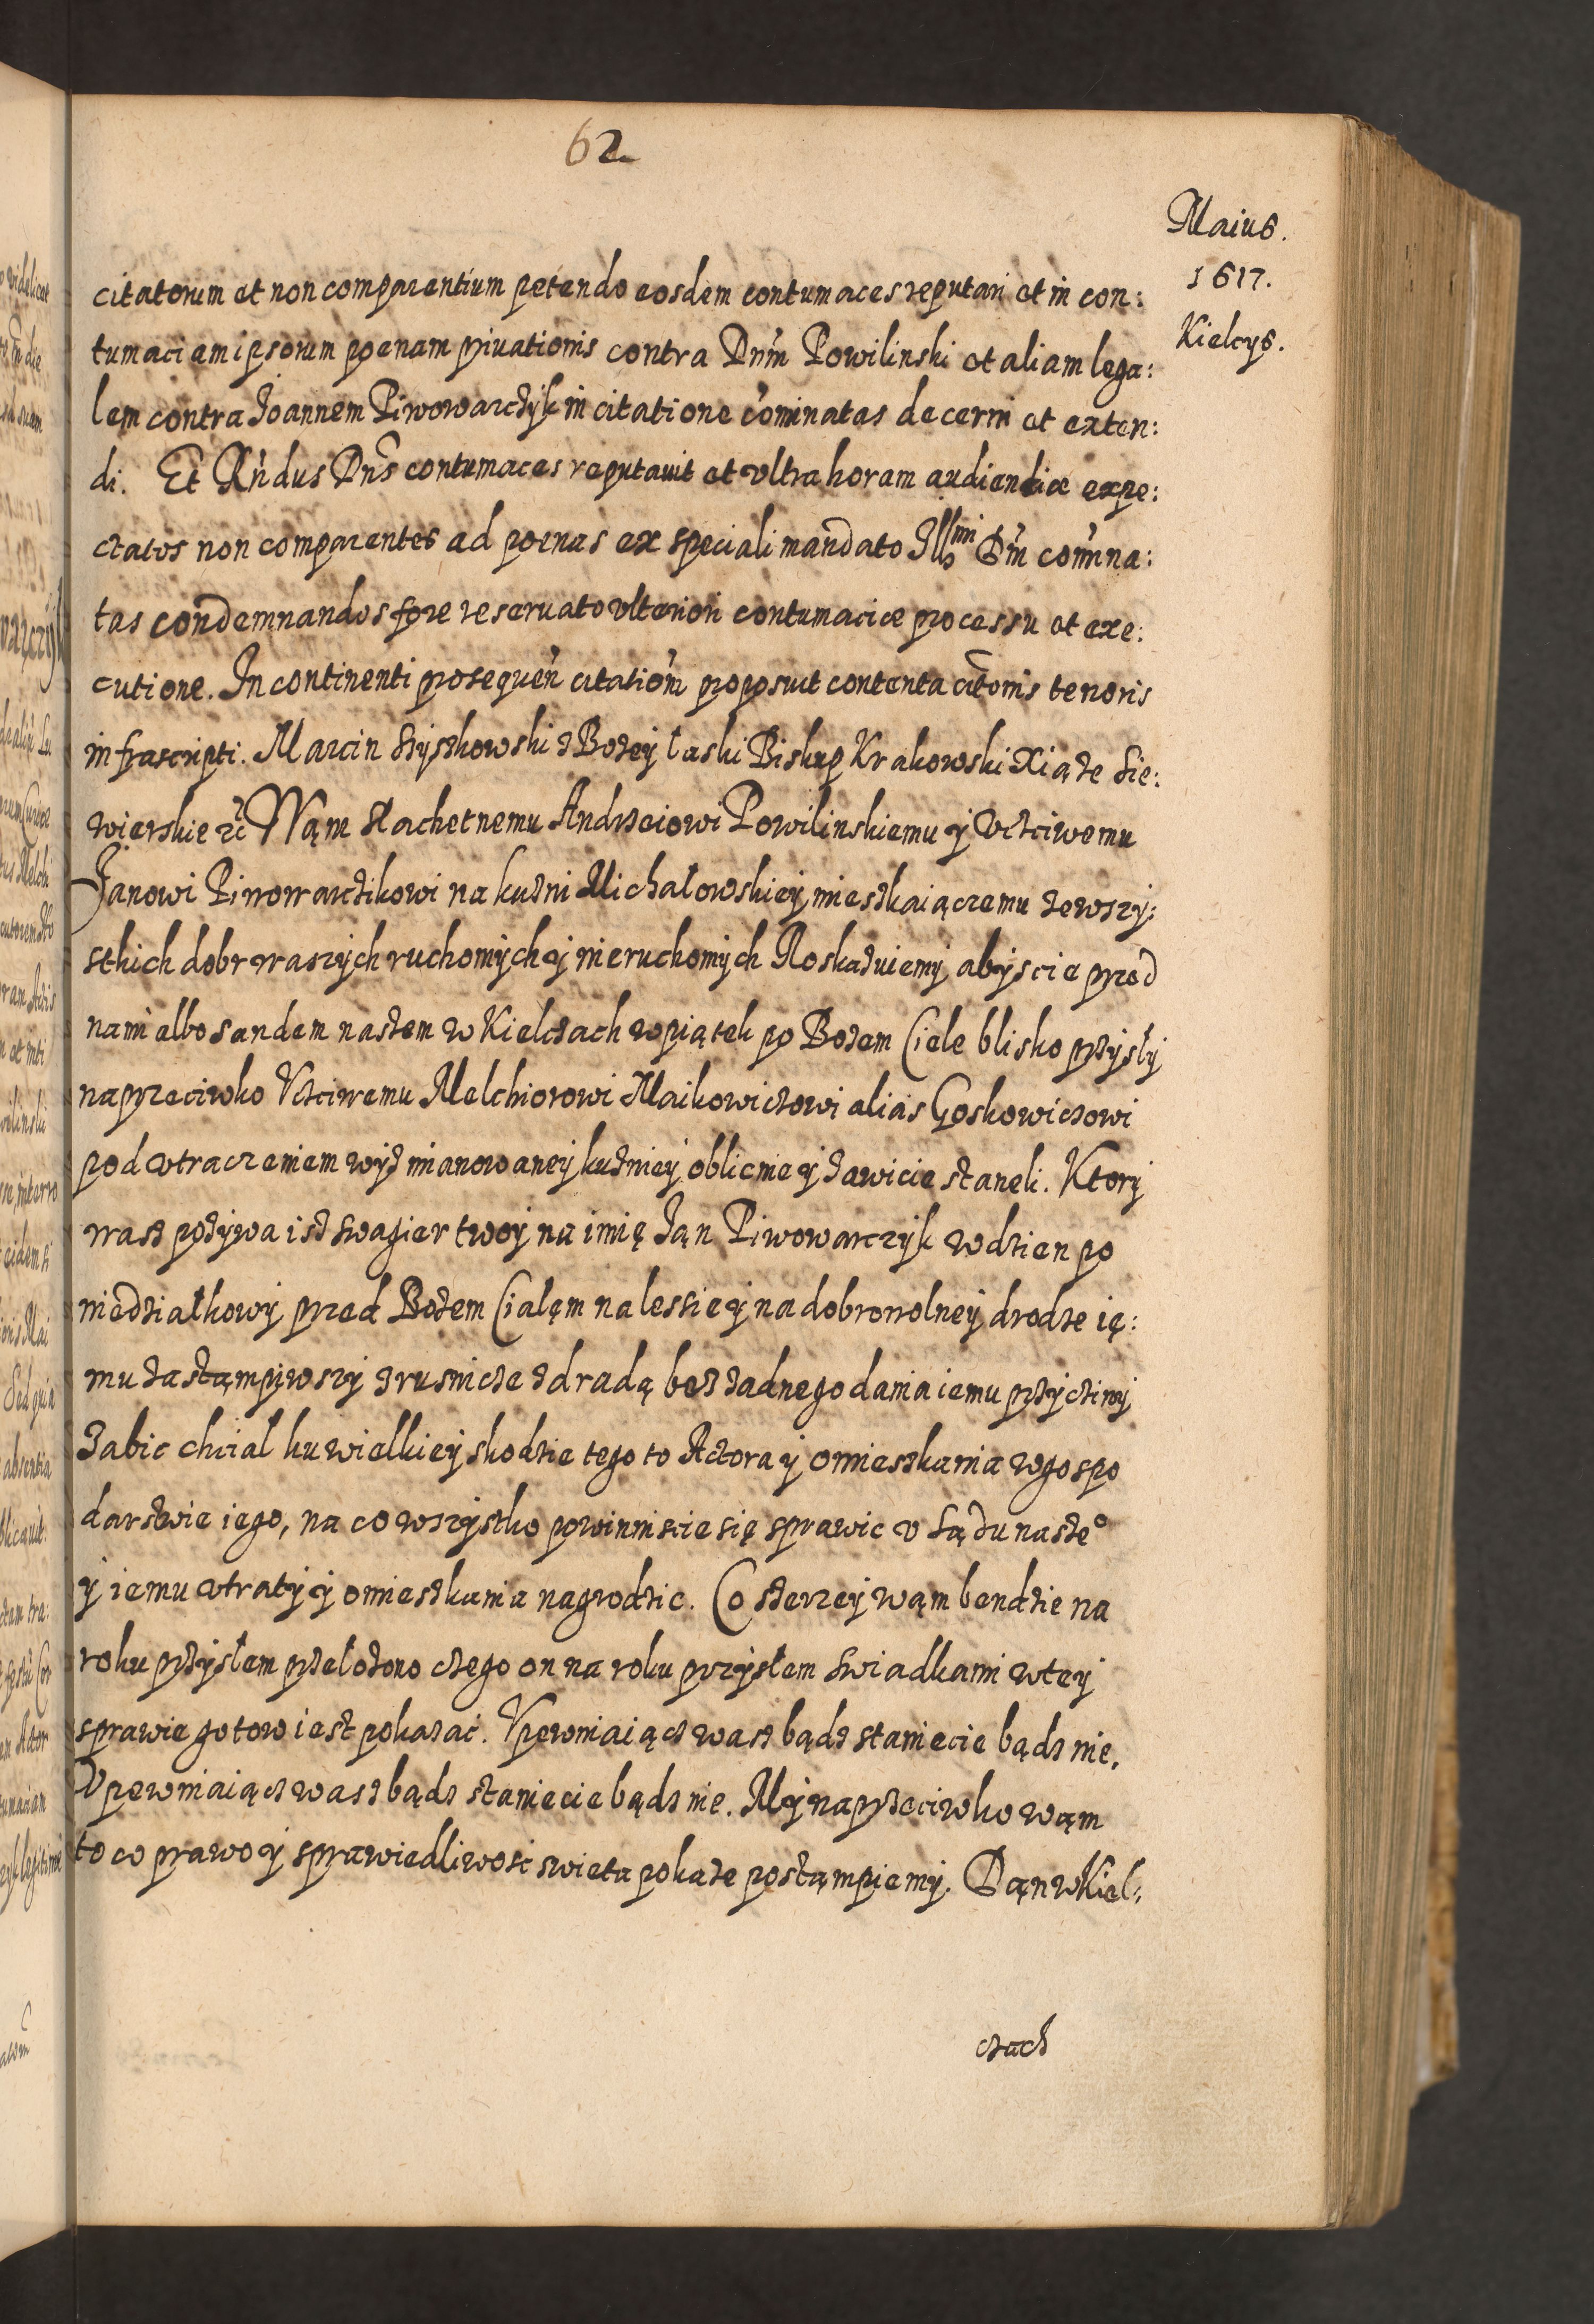 62
Maius.
1617.
Kielcys.
citatorum et non comparentium petendo eosdem contumaces reputari et in con:
tumaciam ipsorum poenam priuationis contra Dnm̃ Powilinski et aliam lega:
lem contra Joannem Piwowarczÿk in citatione cõminatas decerni et exten:
di. Et Rñdus Dns̃ contumaces reputauit et vltra horam audientiæ expe:
ctatos non comparentes ad poenas ex speciali mandato Illmi Dm̃ com̃ina:
tas condemnandos fore reseruato vlteriori contumaciæ processu et exe:
cutione. In continenti proseqẽn citatiõm proposuit contenta citõnis tenoris
infrascripti. Marcin Szyszkowski z Bozeÿ łaski Biskup Krakowski Xiąze Sie:
wierskie ⁊c̃ Wąm Slachetnemu Andrzeiowi Powilinskiemu ÿ Vcziwemu
Janowi Piwowarczikowi na kuzni Michałowskieÿ mieszkaiączemu zewszÿ:
sthich dobr waszÿch ruchomÿch ÿ nieruchomÿch Roskazuiemÿ abÿscie przed
nami albo sandem naszem w Kielczach w piątek po Bozem Ciele blisko przÿsłÿ
naprzeciwko Vcziwemu Melchiorowi Maikowiczowi alias Goskowiczowi
pod vtraczeniem wÿz mianowaneÿ kuzniey oblicnie ÿ zawicie staneli. Ktorÿ
wasz pozÿwa isz swagier twoÿ na imię Jąn Piwowarczyk w dzien po
niedziałkowÿ przed Bozem Ciałęm na lessie ÿ na dobrowolneÿ drodze ię:
mu zastąmpiwszÿ z rusnicze zdradą bez zadnego dania iemu przÿczinÿ
zabic chciał ku wielkieÿ skodzie tego to Actora ÿ omieszkania w gospo
darstwie iego, na co wszystko powinniscie się sprawic v Sądu naszeº
ÿ iemu vtratÿ ÿ omieszkania nagrodzic. Co szerzeÿ wąm bendzie na
roku przÿsłem przełozono czego on na roku przysłem swiadkami w teÿ
sprawie gotow iest pokazac. Vpewniaiącz wasz bądz staniecie bądz nie.
Vpewniaiącz wasz bądz staniecie bądz nie. Mÿ naprzeciwko wąm
to co prawo ÿ sprawiedliwosc swieta pokaze postąmpiemÿ. Dąn w Kiel:
czach